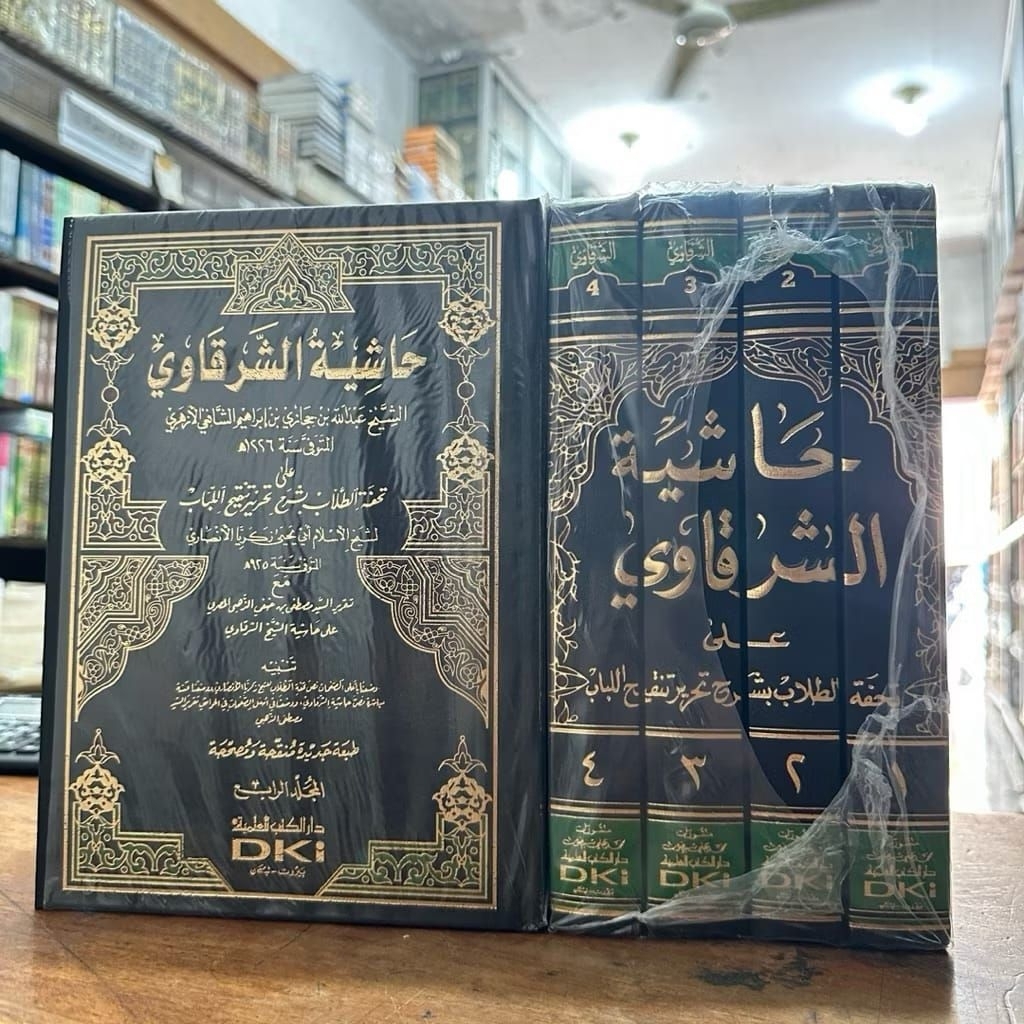 حَاشِيَةُ الشَّرقَاوِيْ
الشيخ عبدالله بن حجازي بن ابراهيم الشافعي الأزهري
المتوفى سنة ١٢٢٦هـ
على
تحفة الطلاب بشرح تحرير تنقيح اللباب
لشيخ الإسلام أبي يحيى زكريا الأنصاري
المتوفى سنة ٩٢٥هـ
مع
تقرير السيد مصطفى بن حنفي الذهبي المصري
على حاشية الشيخ الشرقاوي
تنبيه
مصطفى الذهبي
طبعة جديدة منقحة ومصححة
المجلد الرابع
دار الكتب العلمية
DKi
بيروت - لبنان
الشرقاوي
الشرقاوي
الشرقاوي
4
3
2
حَاشِيَة
الشرقاوي
على
تحفة الطلاب بشرح تحرير تنقيح اللباب
٤
٣
٢
١
دار الكتب العلمية
DKi
دار الكتب العلمية
DKi
DKi
دار الكتب العلمية
DKi